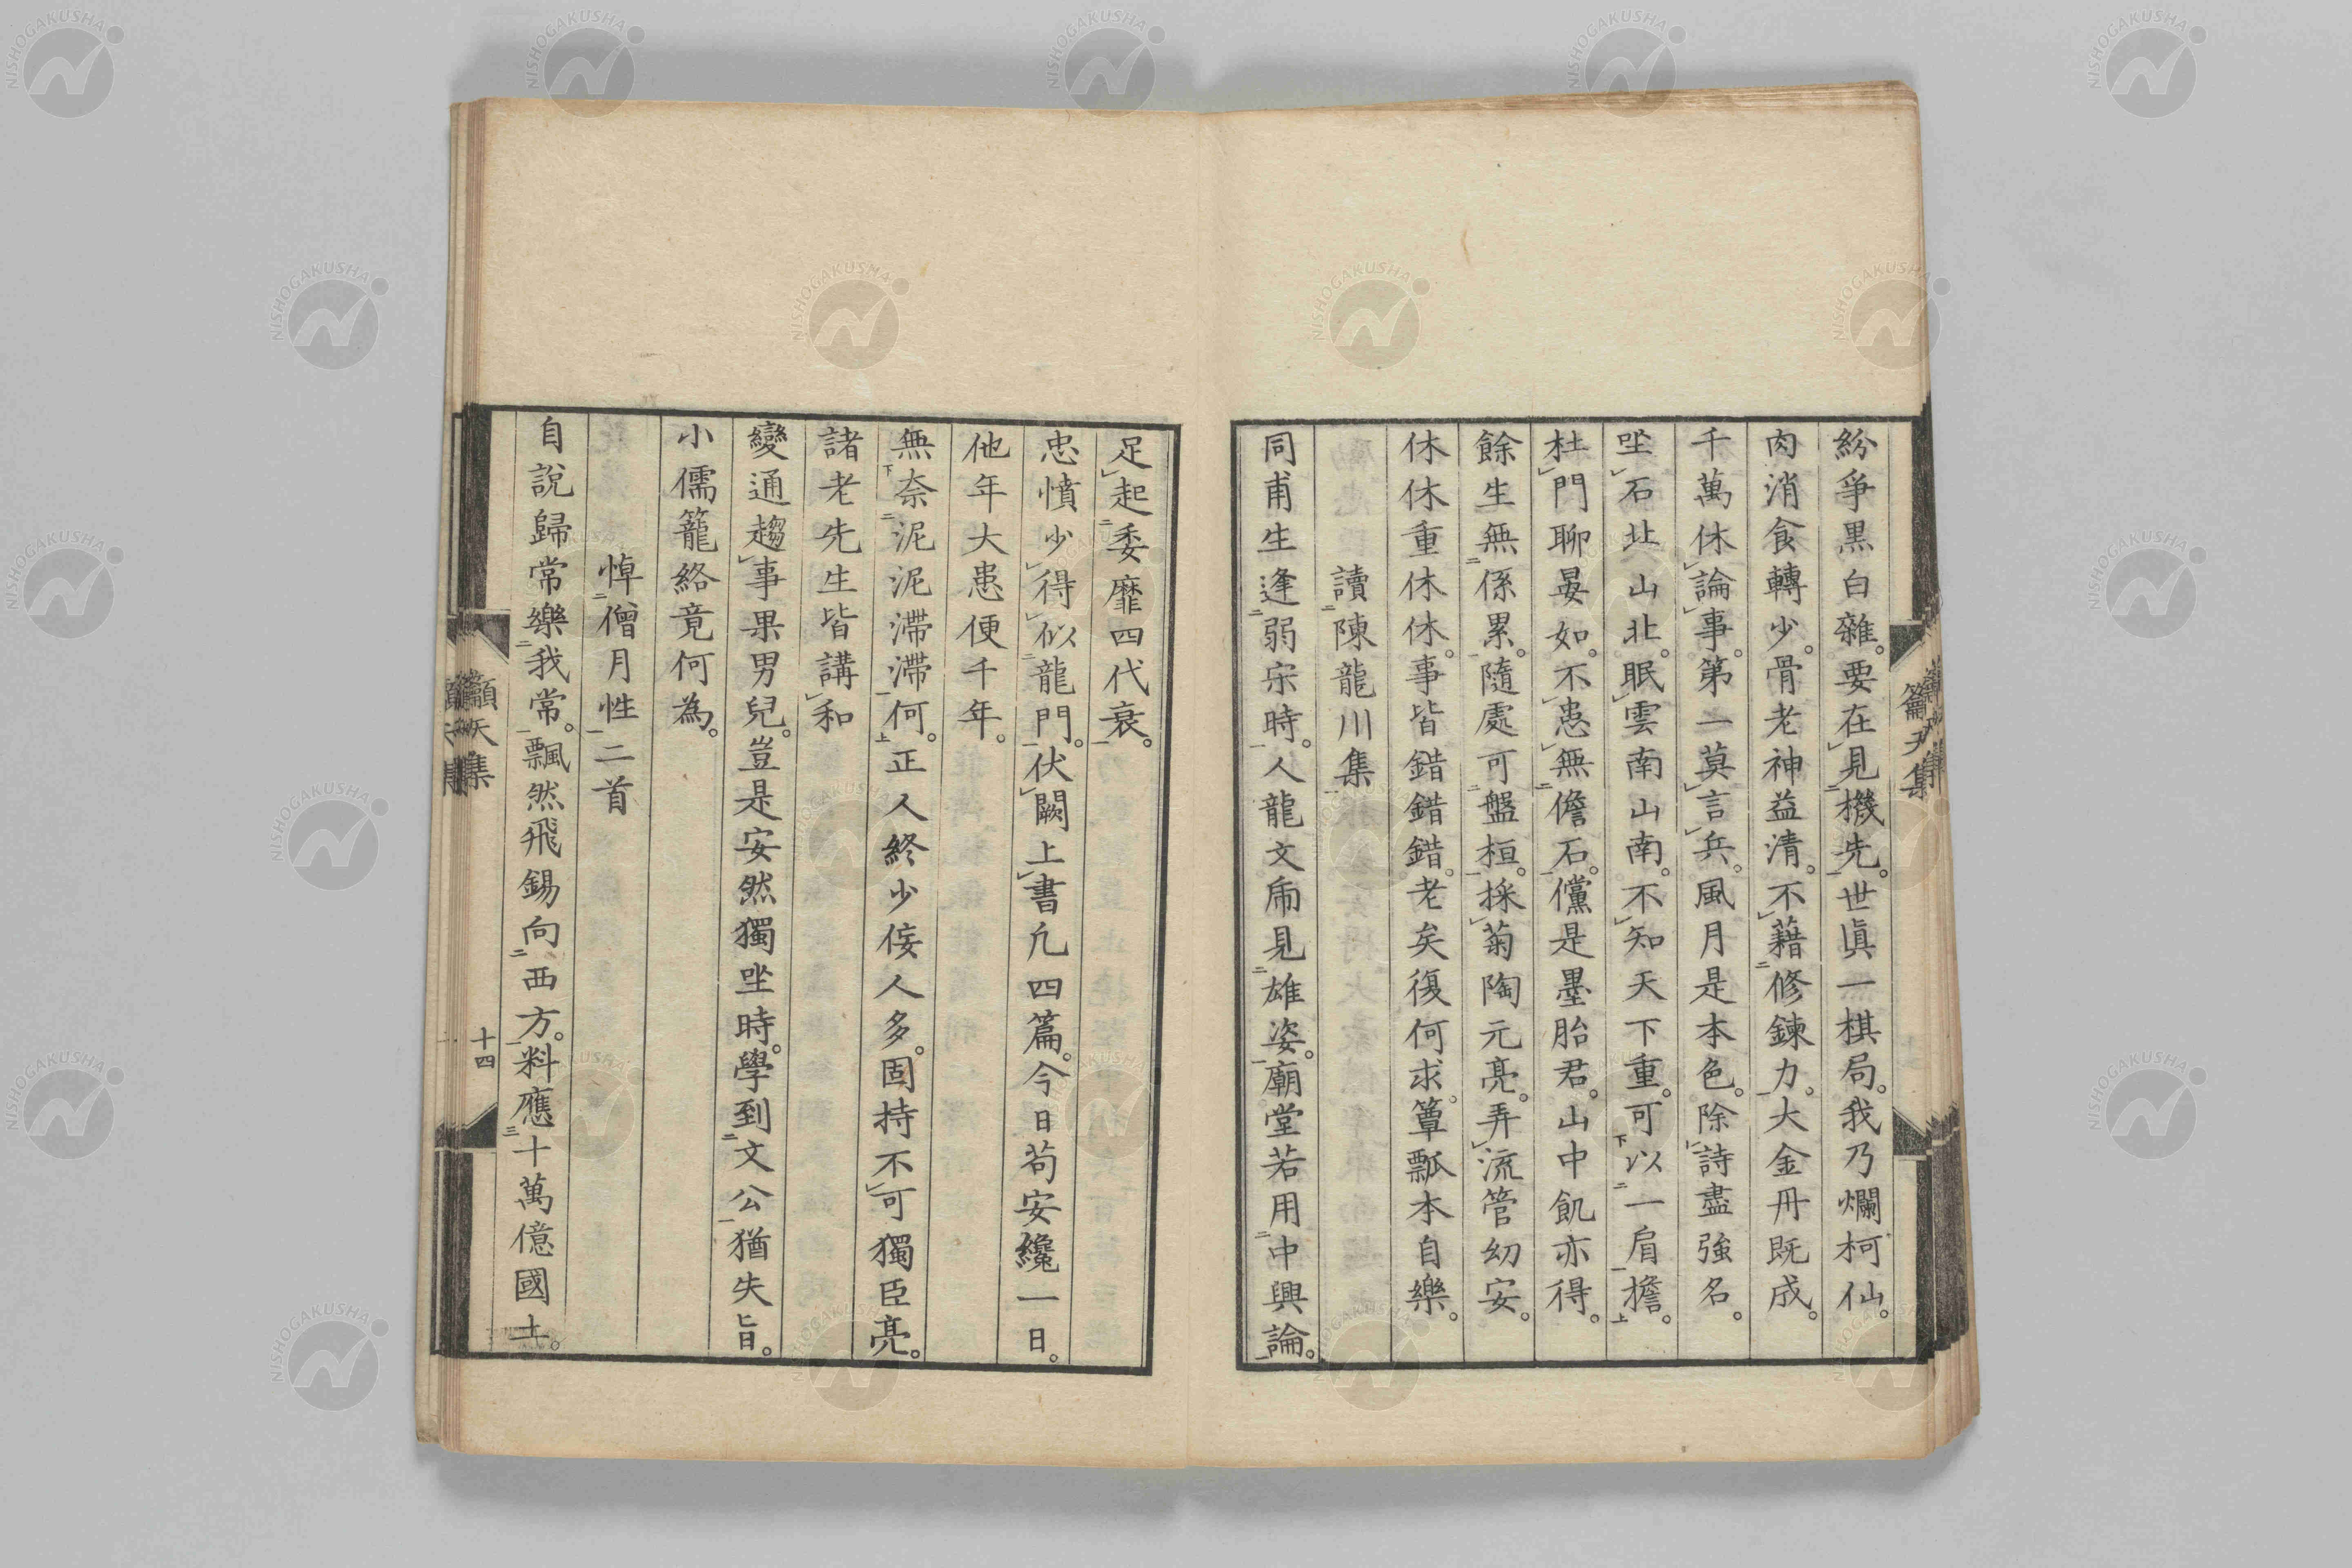 紛爭黒白雜。要在見機先。世眞一棋局。我乃爛柯仙。
肉消食轉少。骨老神益清。不藉修鍊力。大金丹既成。
千萬休論事。第一莫言兵。風月是本色。除詩盡強名。
坐石北山北。眠雲南山南。不知天下重。可以一肩擔。
杜門聊晏如。不患無儋石。儻是墨胎君。山中飢亦得。
餘生無係累。隨處可盤桓。採菊陶元亮。弄流管幼安。
休休重休休。事皆錯錯錯。老矣復何求。簞瓢本自樂。
讀陳龍川集
同甫生逢弱宋時。人龍文乕見雄姿。廟堂若用中興論。
足起委靡四代衰。
忠憤少得似龍門。伏闕上書凢四篇。今日苟安纔一日。
他年大患便千年。
無奈泥泥滯滯何。正人終少佞人多。固持不可獨臣亮。
諸老先生皆講和
變通趨事果男兒。豈是安然獨坐時。學到文公猶失旨。
小儒籠絡竟何為。
悼僧月性二首
自說歸常樂我常。飄然飛錫向西方。料應十萬億國土。
籲天集
十四
NISHOGAKUSHA